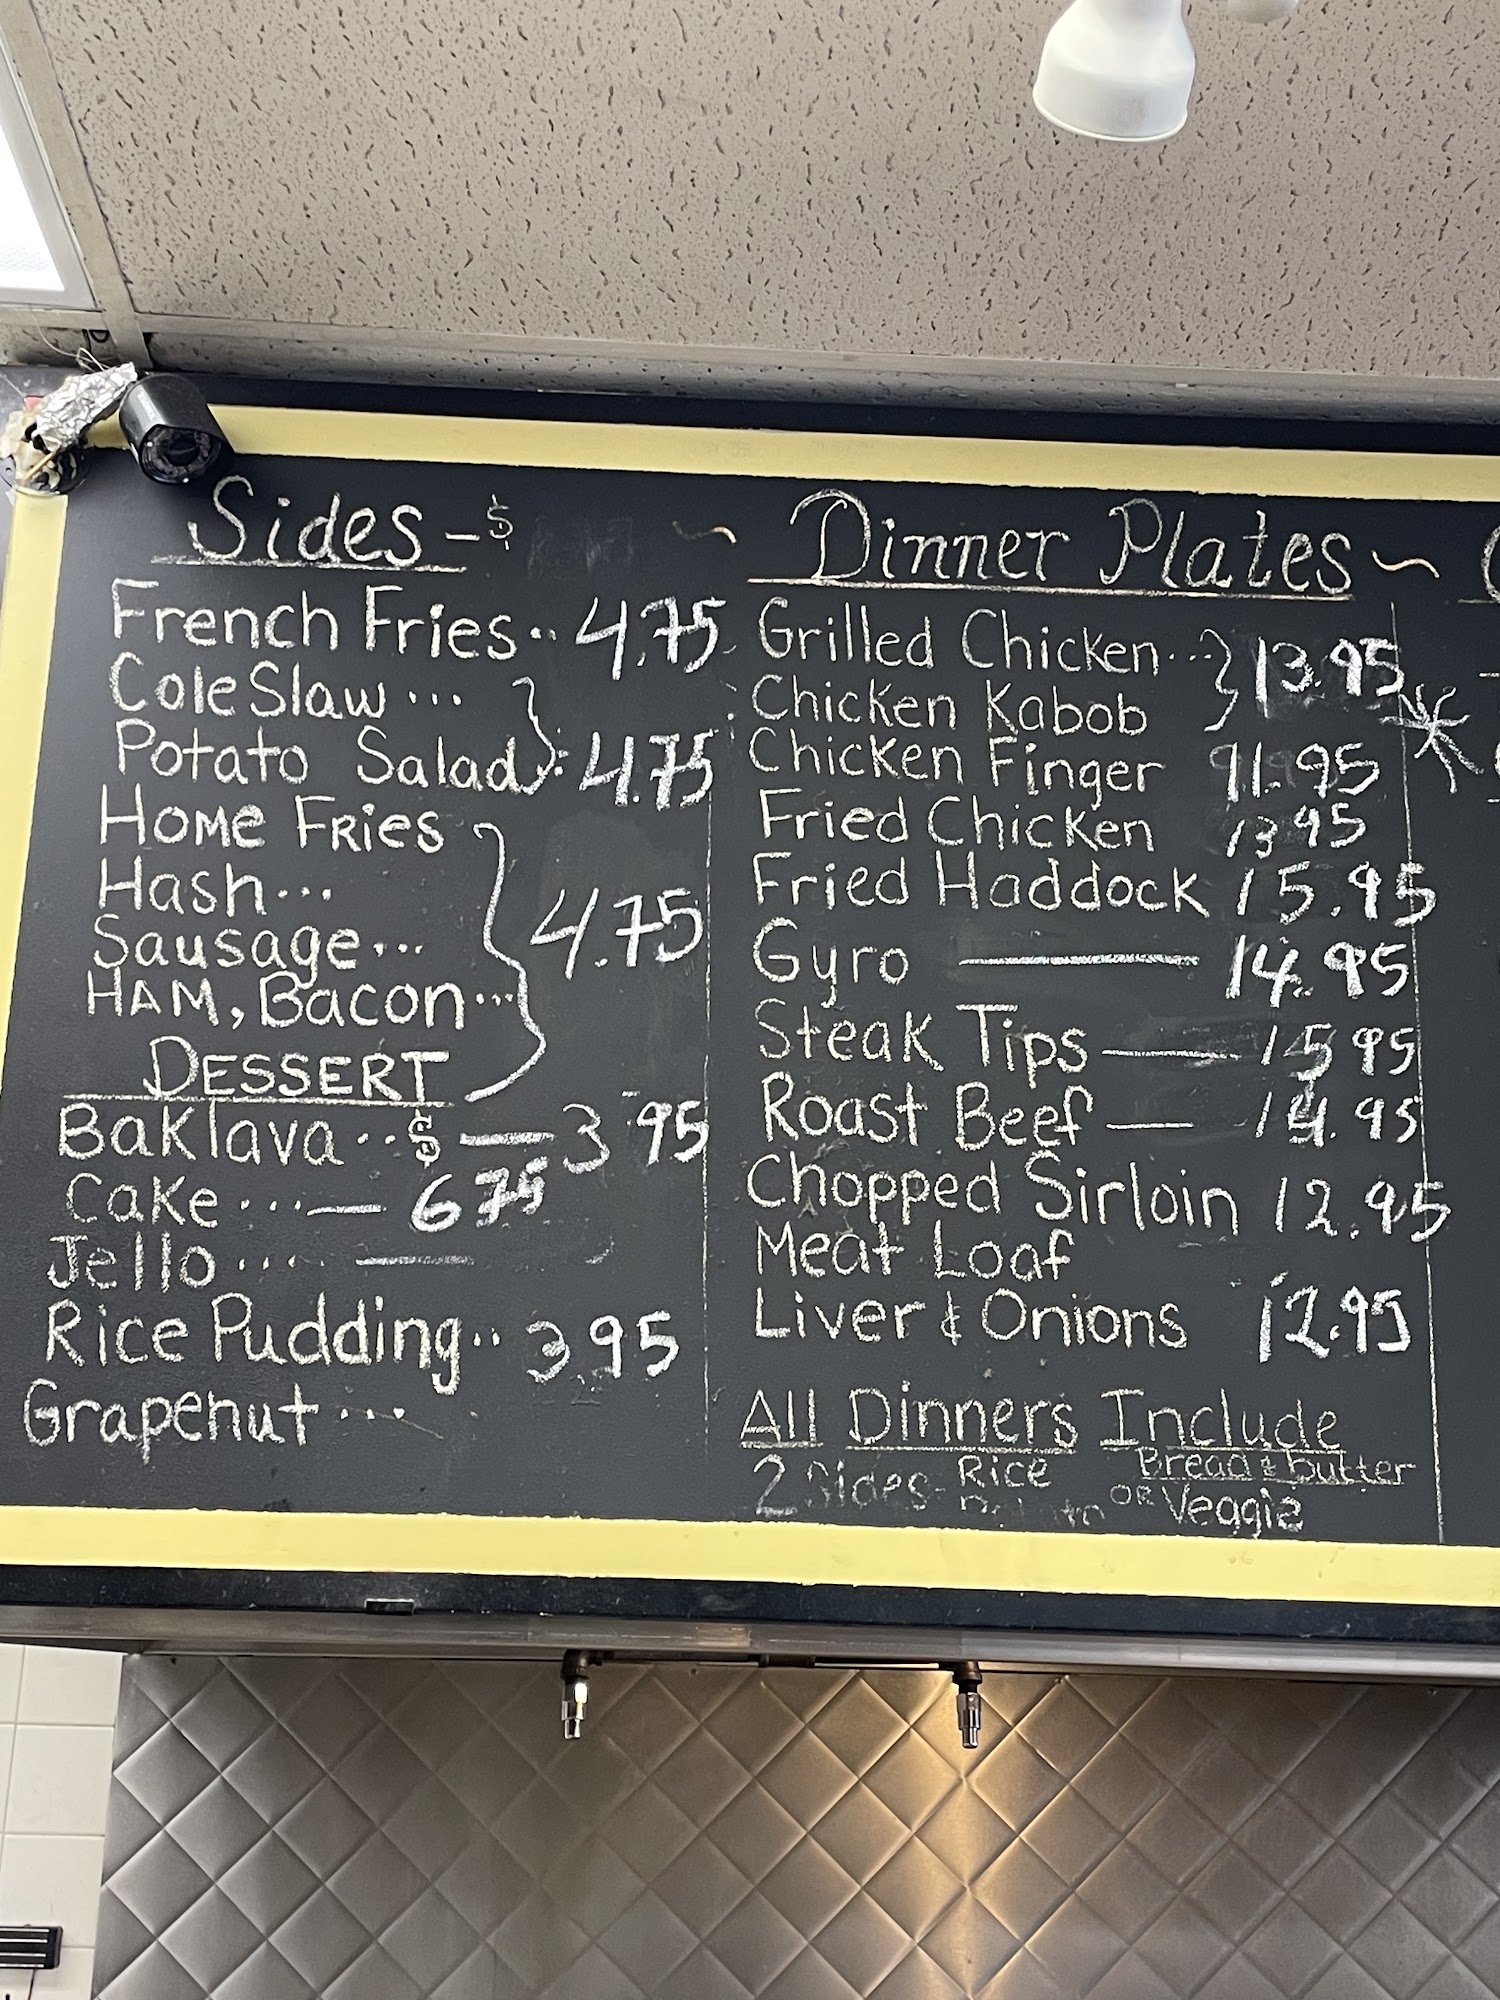 Sides - $
French Fries .. 4.75
Cole Slaw ...
Potato Salad : 4.75
Home Fries
Hash ...
Sausage ...
Ham, Bacon ...
4.75
DESSERT
Baklava .. $ — 3 95
Cake ... — 6 75
Jello .... —
Rice Pudding .. 3 95
Grapenut ...
~ Dinner Plates ~
Grilled Chicken ... 13.95
Chicken Kabob
Chicken Finger 11.95
Fried Chicken 13 95
Fried Haddock 15.95
Gyro — 14.95
Steak Tips — 15 95
Roast Beef — 14.95
Chopped Sirloin 12.95
Meat Loaf
Liver & Onions 12.95
All Dinners Include
Bread & butter
2 Sides - Rice
or Veggie